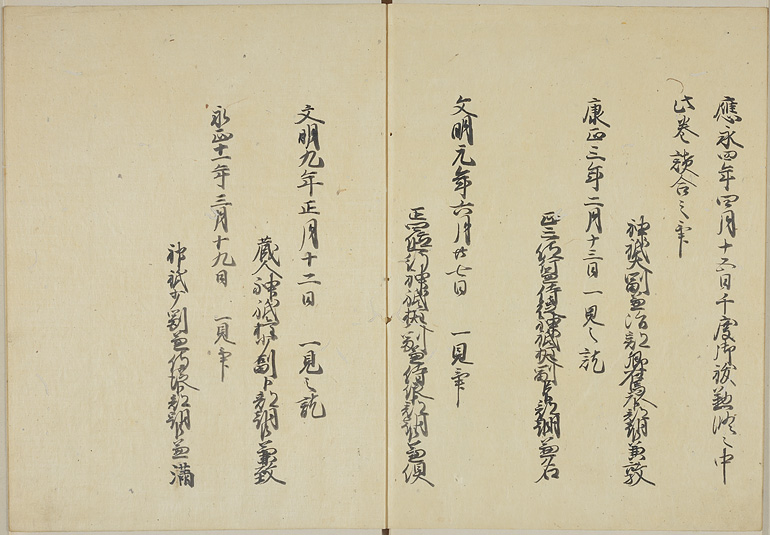 應永四年四月十六日千度御祓懃修之中
此巻談合之訖
神祇大副兼治部卿卜部朝臣兼敦
康正三年二月十三日一見之訖
正三位行侍従神祇権大副卜部朝臣兼名
文明元年六月廿七日 一見畢
神祇権大副兼侍従卜部朝臣兼倶
文明九年正月十二日 一見之訖
蔵人神祇権少副卜部朝臣兼致
永正十一年三月十九日 一見畢
神祇少副兼侍従卜部朝臣兼満